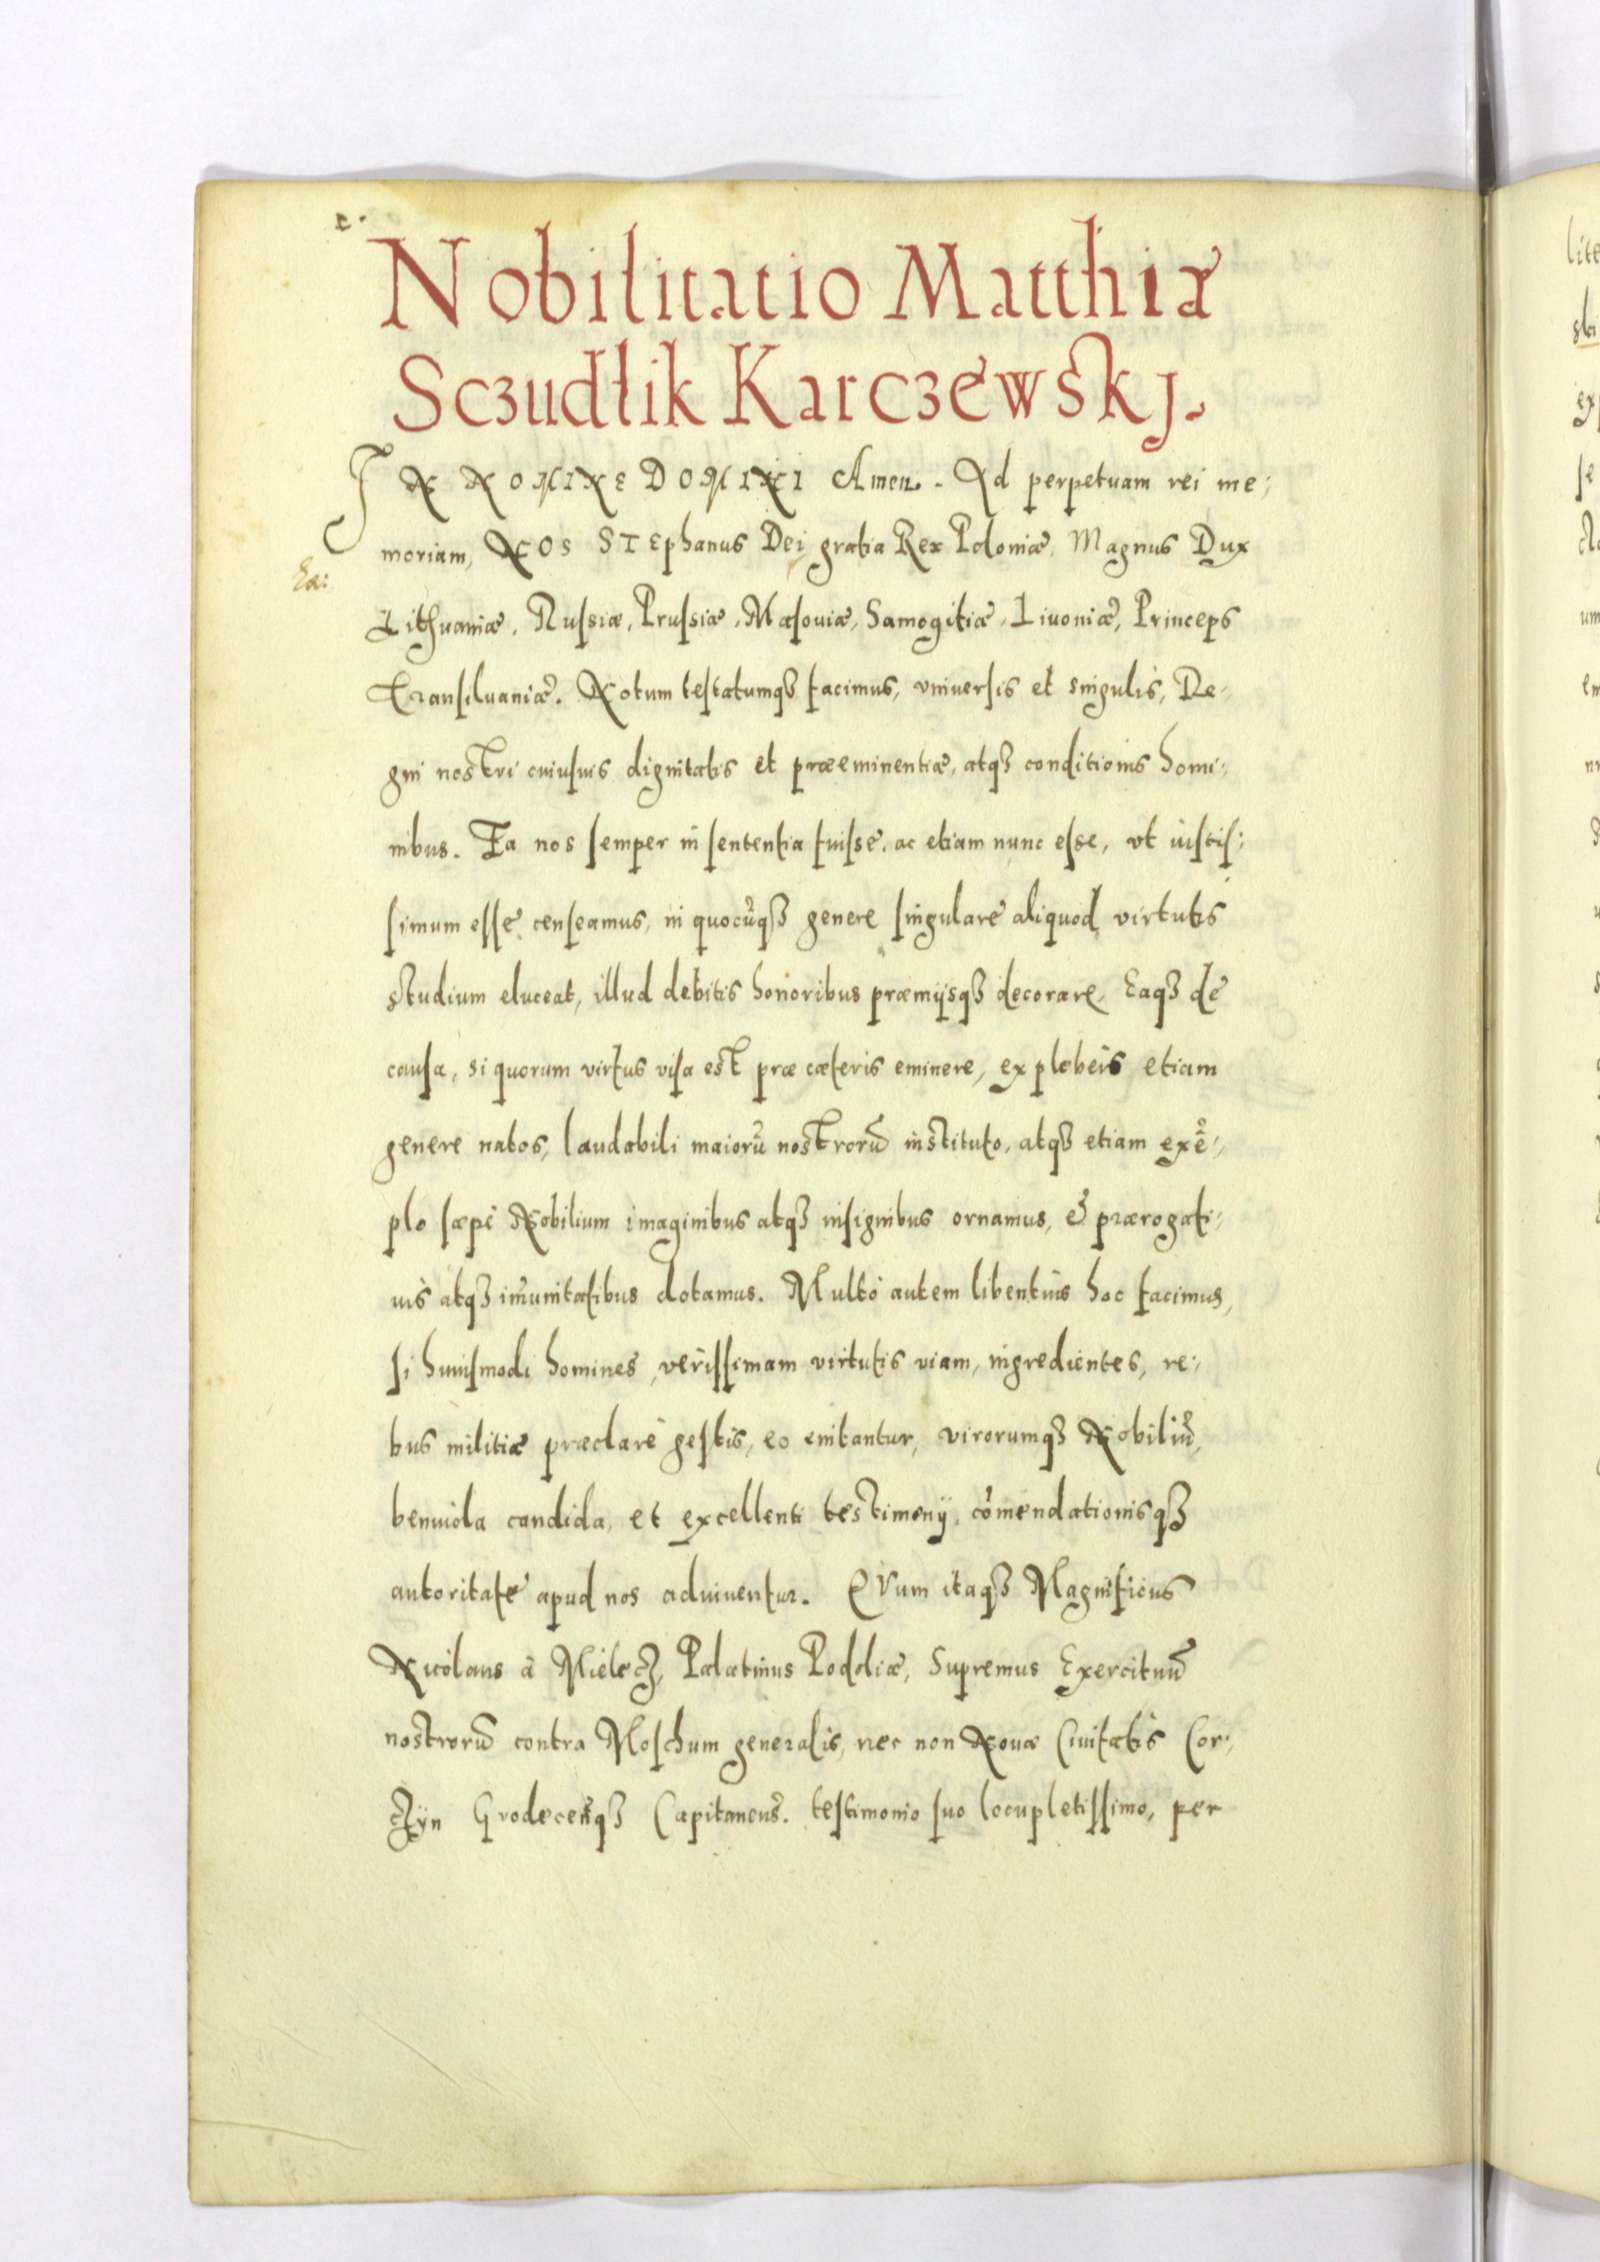 Nobilitatio Matthiæ
Sczudłik Karczewskj.
IN NOMINE DOMINI Amen. Ad perpetuam rei me,
moriam, NOS STEphanus Dei gratia Rex Poloniæ, Magnus Dux
Lithuaniæ, Russiæ, Prussiæ, Masouiæ, Samogitiæ, Liuoniæ, Princeps
Transiluaniæ. Notum testatumqȝ facimus, vniuersis et singulis, Re,
gni nostri cuiusuis dignitatis et præeminentiæ, atqȝ conditionis homi,
nibus. Ea nos semper in sententia fuisse, ac etiam nunc esse, vt iustis,
simum esse censeamus, in quocūqȝ genere singulare aliquod virtutis
studium eluceat, illud debitis honoribus præmijsqȝ decorare, Eaqȝ de
causa, si quorum virtus visa est præ cæteris eminere, ex plebeis etiam
genere natos, laudabili maiorū nostrorū instituto, atqȝ etiam exē,
plo sæpè Nobilium imaginibus atqȝ insignibus ornamus, & prærogati,
uis atqȝ im̄unitatibus dotamus. Multò autem libentiùs hoc facimus,
si huiusmodi homines, verissimam virtutis viam, ingredientes, re,
bus militiæ præclarè gestis, eo enitantur, virorumqȝ Nobiliū,
beniuola candida, et excellenti testimonij, cōmendationisqȝ
autoritate apud nos adiuuentur. CVum itaqȝ Magnificus
Nicolaus à Mielecz, Palatinus Podoliæ, Supremus Exercituū
nostrorū contra Moschum generalis, nec non Nouæ Ciuitatis Cor,
czyn Grodecen̄qȝ Capitaneus. testimonio suo locupletissimo, per